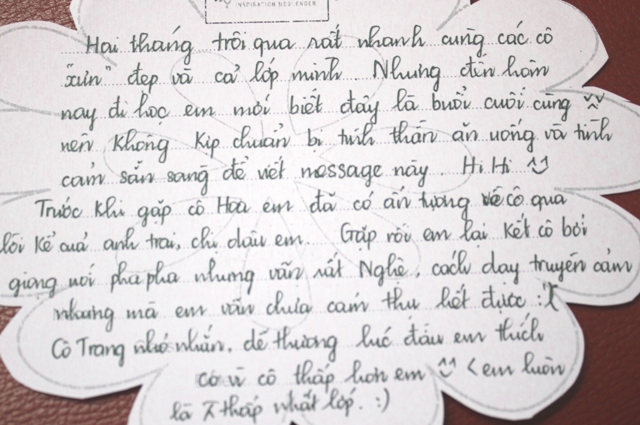 INSPIRATION DESIGNER
Hai tháng trôi qua rất nhanh cùng các cô
"xửn" đẹp và cả lớp mình. Nhưng đến hôm
nay đi học em mới biết đây là buổi cuối cùng
nên không kịp chuẩn bị tinh thần ăn uống và tình
cảm sẵn sàng để viết message này. Hi Hi
Trước khi gặp cô Hoa em đã có ấn tượng về cô qua
lời kể của anh trai, chị dâu em. Gặp rồi em lại kết cô bởi
giọng nói pha pha nhưng vẫn rất Nghệ, cách dạy truyền cảm
nhưng mà em vẫn chưa cảm thụ hết được :(
Cô Trang nhỏ nhắn, dễ thương lúc đầu em thích
cô vì cô thấp hơn em < em luôn
là thấp nhất lớp. :)